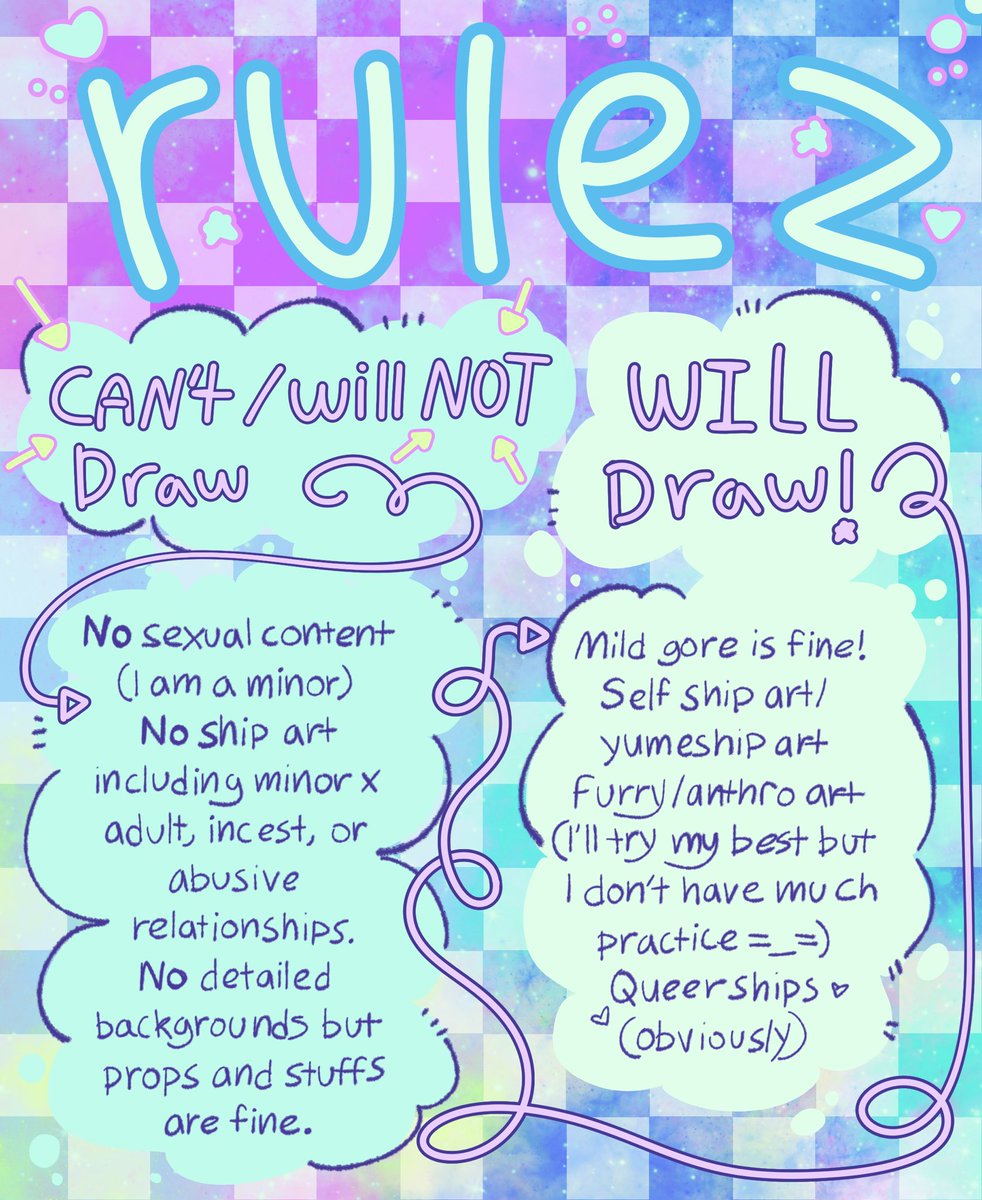 rulez
CAN't/will NOT
Draw
No sexual content
(I am a minor)
No ship art
including minor x
adult, incest, or
abusive
relationships.
No detailed
backgrounds but
props and stuffs
are fine.
WILL
Draw!
Mild gore is fine!
Self ship art/
yumeship art
Furry/anthro art
(I'll try my best but
I don't have much
practice =_=)
Queerships
(obviously)